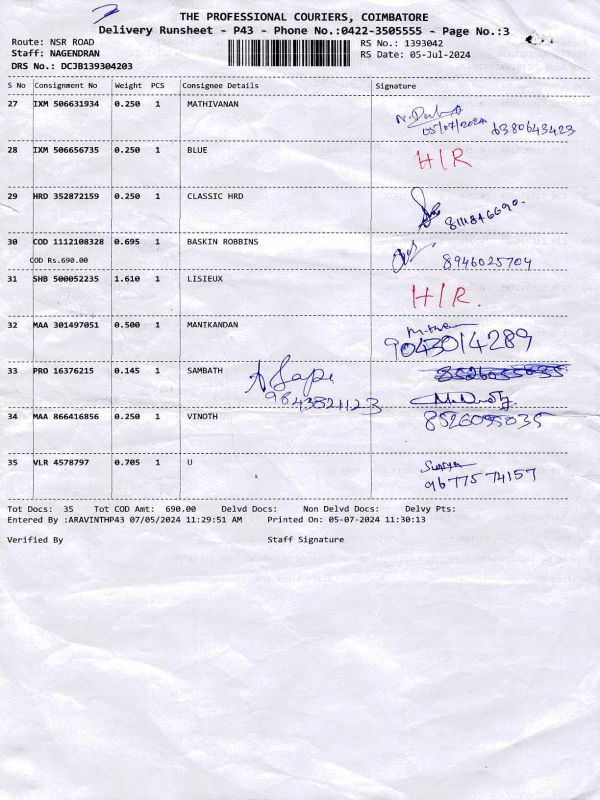 THE PROFESSIONAL COURIERS, COIMBATORE
Delivery Runsheet - P43 - Phone No.:0422-3505555 - Page No.:3
Route: NSR ROAD RS No.: 1393042
Staff: NAGENDRAN RS Date: 05-Jul-2024
DRS No.: DCJB139304203
S No Consignment No Weight PCS Consignee Details Signature
27 IXM 506631934 0.250 1 MATHIVANAN
05/07/2024 6380643423
28 IXM 506656735 0.250 1 BLUE H/R
29 HRD 352872159 0.250 1 CLASSIC HRD
8111846690.
30 COD 1112108328 0.695 1 BASKIN ROBBINS
COD Rs.690.00 8946025704
31 SHB 500052235 1.610 1 LISIEUX H/R.
32 MAA 301497051 0.500 1 MANIKANDAN
9043014289
33 PRO 16376215 0.145 1 SAMBATH
9843821123
34 MAA 866416856 0.250 1 VINOTH 8526055035
35 VLR 4578797 0.705 1 U
9677574157
Tot Docs: 35 Tot COD Amt: 690.00 Delvd Docs: Non Delvd Docs: Delvy Pts:
Entered By :ARAVINTHP43 07/05/2024 11:29:51 AM Printed On: 05-07-2024 11:30:13
Verified By Staff Signature